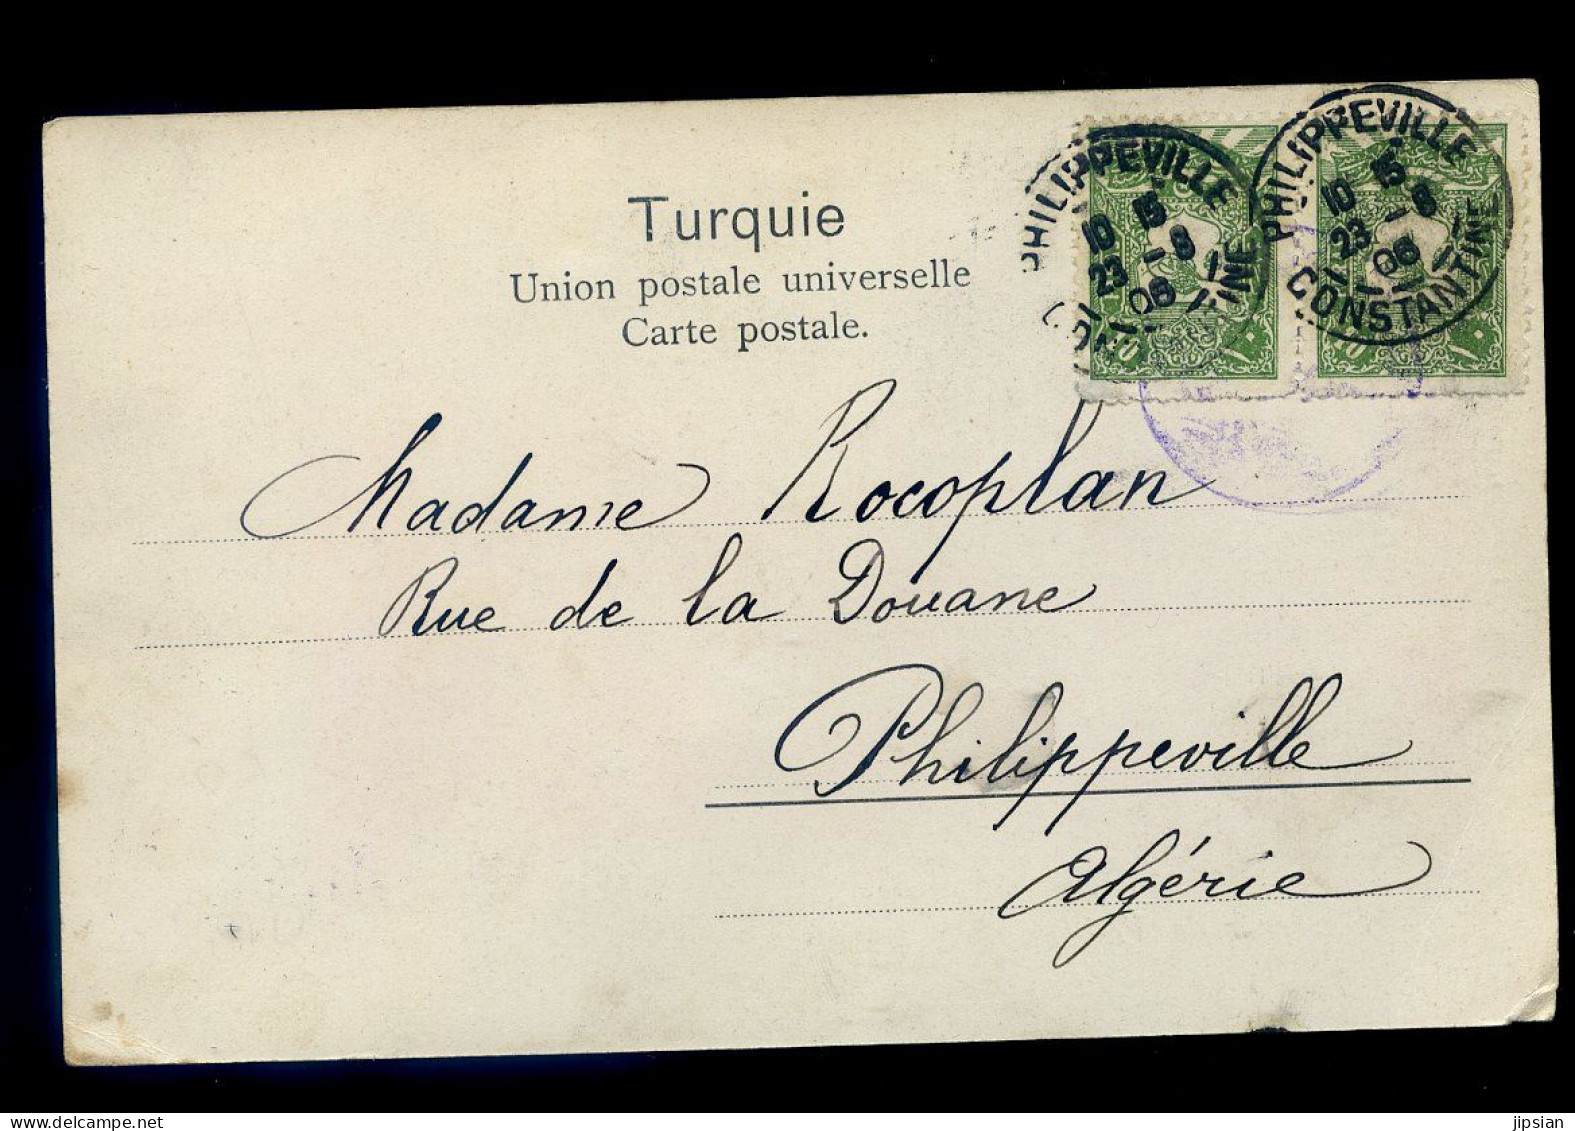 Turquie
Union postale universelle
Carte postale.
PHILIPPEVILLE
10 15
23 -8
06
PHILIPPEVILLE
10 15
23 -8
06
CONSTANTINE
10 ١٠
10 ١٠
Madame Rocoplan
Rue de la Douane
Philippeville
Algérie
jipsian